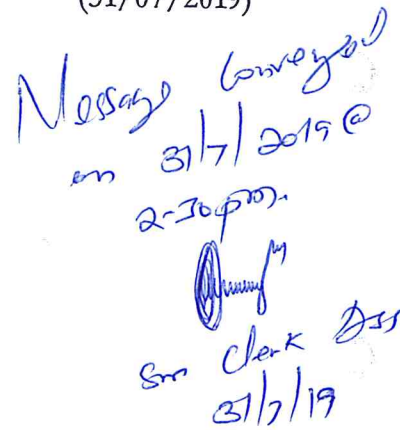 (31/07/2019)
Message Conveyed
on 31/7/2019 @
2-30 pm.
Clerk
31/7/19